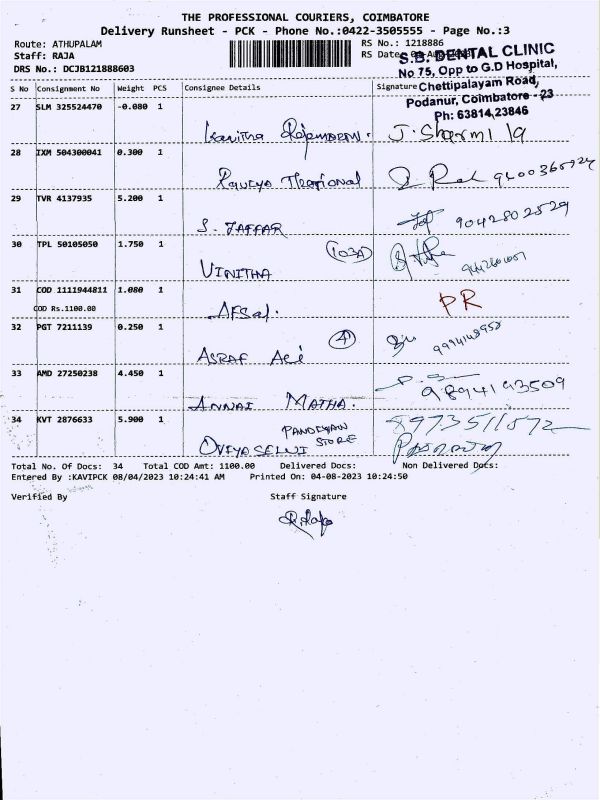 THE PROFESSIONAL COURIERS, COIMBATORE
Delivery Runsheet - PCK - Phone No.:0422-3505555 - Page No.:3
Route: ATHUPALAM
Staff: RAJA
DRS No.: DCJB121888603
RS No.: 1218886
RS Date:
S.B. DENTAL CLINIC
No 75, Opp to G.D Hospital,
Chettipalayam Road,
Podanur, Coimbatore - 23
Ph: 63814,23846
S No Consignment No Weight PCS Consignee Details Signature
27 SLM 325524470 -0.080 1 Kavitha J. Sharmi
28 IXM 504300041 0.300 1
29 TVR 4137935 5.200 1 S. JAFFAR 9042802529
30 TPL 50105050 1.750 1 VINITHA (103A)
31 COD 1111944811 1.080 1 AFSal. PR
COD Rs.1100.00
32 PGT 7211139 0.250 1 ASRAF Ali
33 AMD 27250238 4.450 1 ANNAI MATHA. 9894193509
34 KVT 2876633 5.900 1 OVIYA SELVI PANDIYAN STORE
Total No. Of Docs: 34 Total COD Amt: 1100.00 Delivered Docs: Non Delivered Docs:
Entered By :KAVIPCK 08/04/2023 10:24:41 AM Printed On: 04-08-2023 10:24:50
Verified By Staff Signature